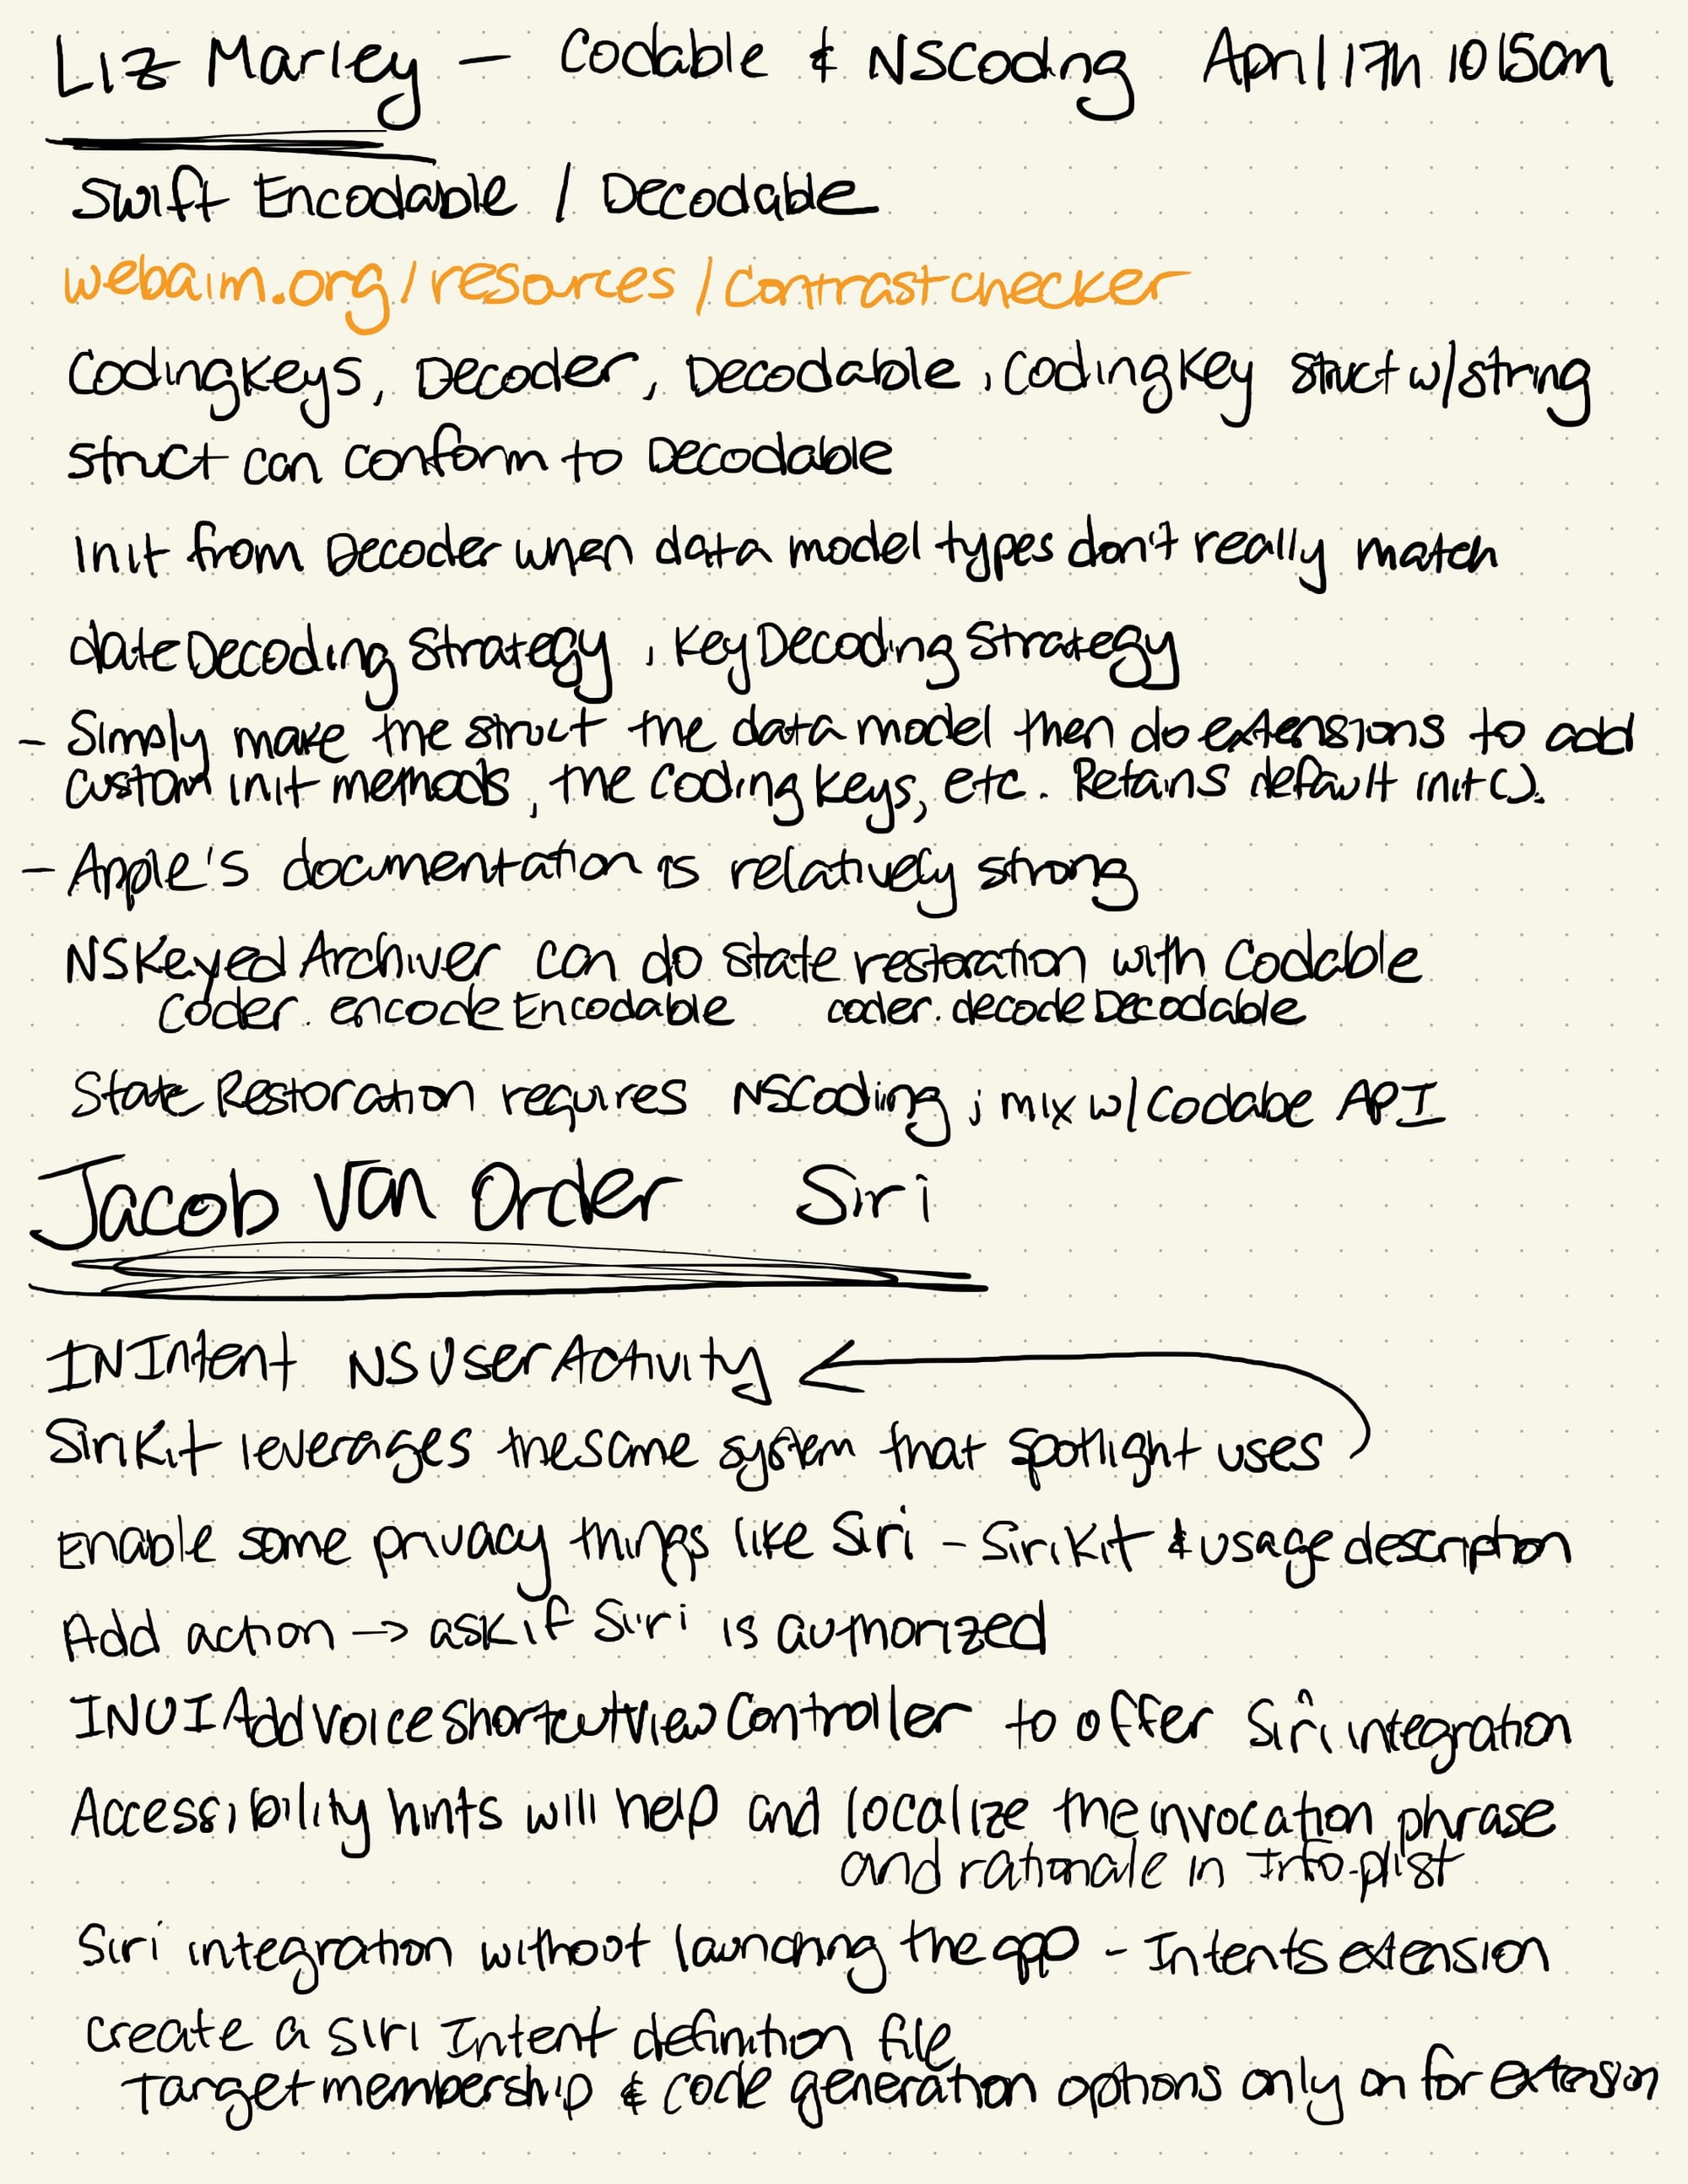 Liz Marley - Codable & NSCoding April 17th 10 15am
Swift Encodable / Decodable
webaim.org/resources/contrastchecker
CodingKeys, Decoder, Decodable, CodingKey struct w/string
struct can conform to Decodable
Init from Decoder when data model types don't really match
dateDecodingStrategy, KeyDecodingStrategy
- Simply make the struct the data model then do extensions to add
custom init methods, the coding keys, etc. Retains default init().
- Apple's documentation is relatively strong
NSKeyedArchiver can do state restoration with Codable
coder.encodeEncodable coder.decodeDecodable
State Restoration requires NSCoding; mix w/Codabe API
Jacob Van Order Siri
INIntent NSUserActivity
SiriKit leverages the same system that spotlight uses
Enable some privacy things like Siri - SiriKit & usage description
Add action -> ask if Siri is authorized
INUIAddVoiceShortcutViewController to offer Siri integration
Accessibility hints will help and localize the invocation phrase
and rationale in Info.plist
Siri integration without launching the app - Intents extension
create a siri Intent definition file
Target membership & code generation options only on for extension